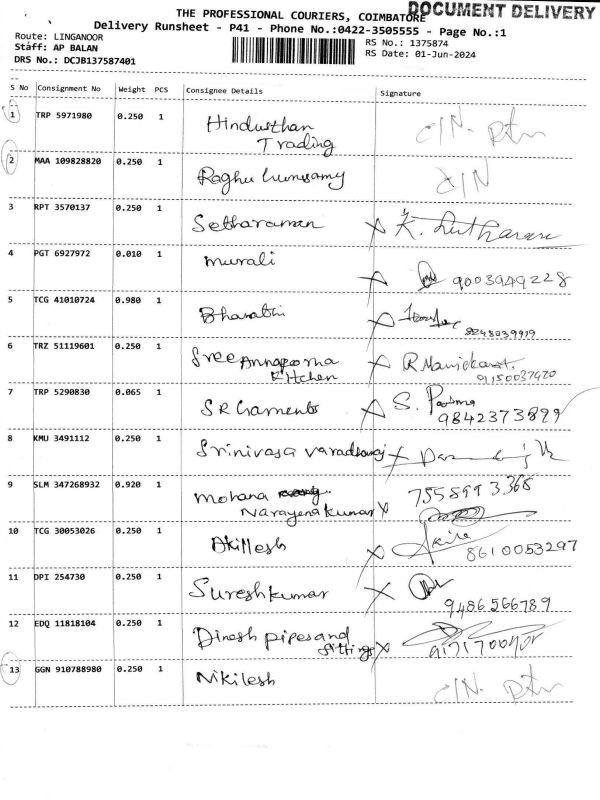 DOCUMENT DELIVERY
THE PROFESSIONAL COURIERS, COIMBATORE
Delivery Runsheet - P41 - Phone No.:0422-3505555 - Page No.:1
Route: LINGANOOR
Staff: AP BALAN
DRS No.: DCJB137587401
RS No.: 1375874
RS Date: 01-Jun-2024
S No Consignment No Weight PCS Consignee Details Signature
1 TRP 5971980 0.250 1 Hindusthan
Trading
2 MAA 109828820 0.250 1
3 RPT 3570137 0.250 1 Setharaman
4 PGT 6927972 0.010 1 murali 9003949228
5 TCG 41010724 0.980 1 Bharathi 8248039919
6 TRZ 51119601 0.250 1 Sree Annaporna
Kitchen
7 TRP 5290830 0.065 1 SR Garments S. Padma
9842373899
8 KMU 3491112 0.250 1 Srinivasa varadharaj
9 SLM 347268932 0.920 1 mohana 7558993368
Narayenakumar
10 TCG 30053026 0.250 1 Akillesh Akila
8610053297
11 DPI 254730 0.250 1 Sureshkumar
9486566789
12 EDQ 11818104 0.250 1 Dinesh pipes and
fittings
13 GGN 910788980 0.250 1 Nikilesh